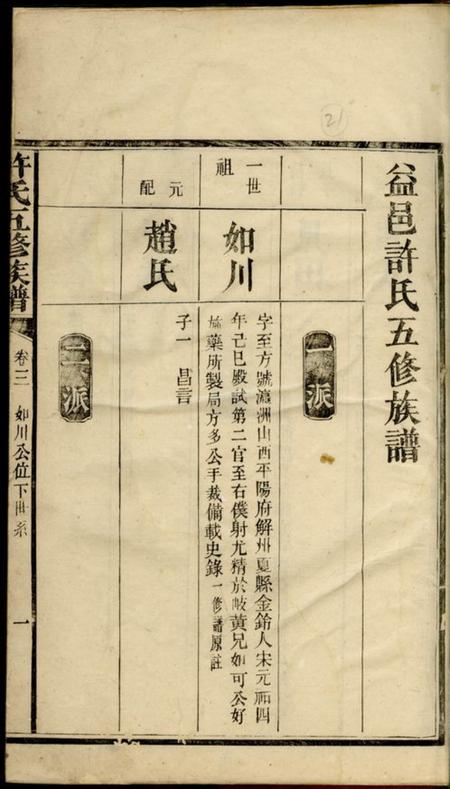 21
益邑許氏五修族譜
一派
一世
祖
如川
字至方號瀛洲山西平陽府解州夏縣金鈴人宋元祐四
年己巳殿試第二官至右僕射尤精於岐黃兄如可公好
施藥所製局方多公手裁備載史錄一修譜原註
元
配
趙氏
子一 昌言
二派
許氏五修族譜
卷三 如川公位下世系
一